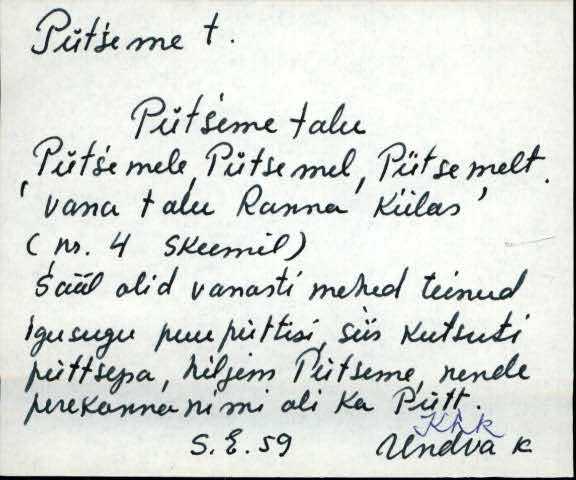 Pütśeme t.
Pütśeme talu
Pütśemele, Pütsemel, Pütsemelt.
'vana talu Ranna külas'
(nr. 4 skeemil)
Śääl olid vanasti mehed teinud
igusugu puupüttisi, siis kutsuti
püttsepa, hiljem Pütseme, nende
perekonna nimi oli ka Pütt.
Khk
S. E. 59 Undva k